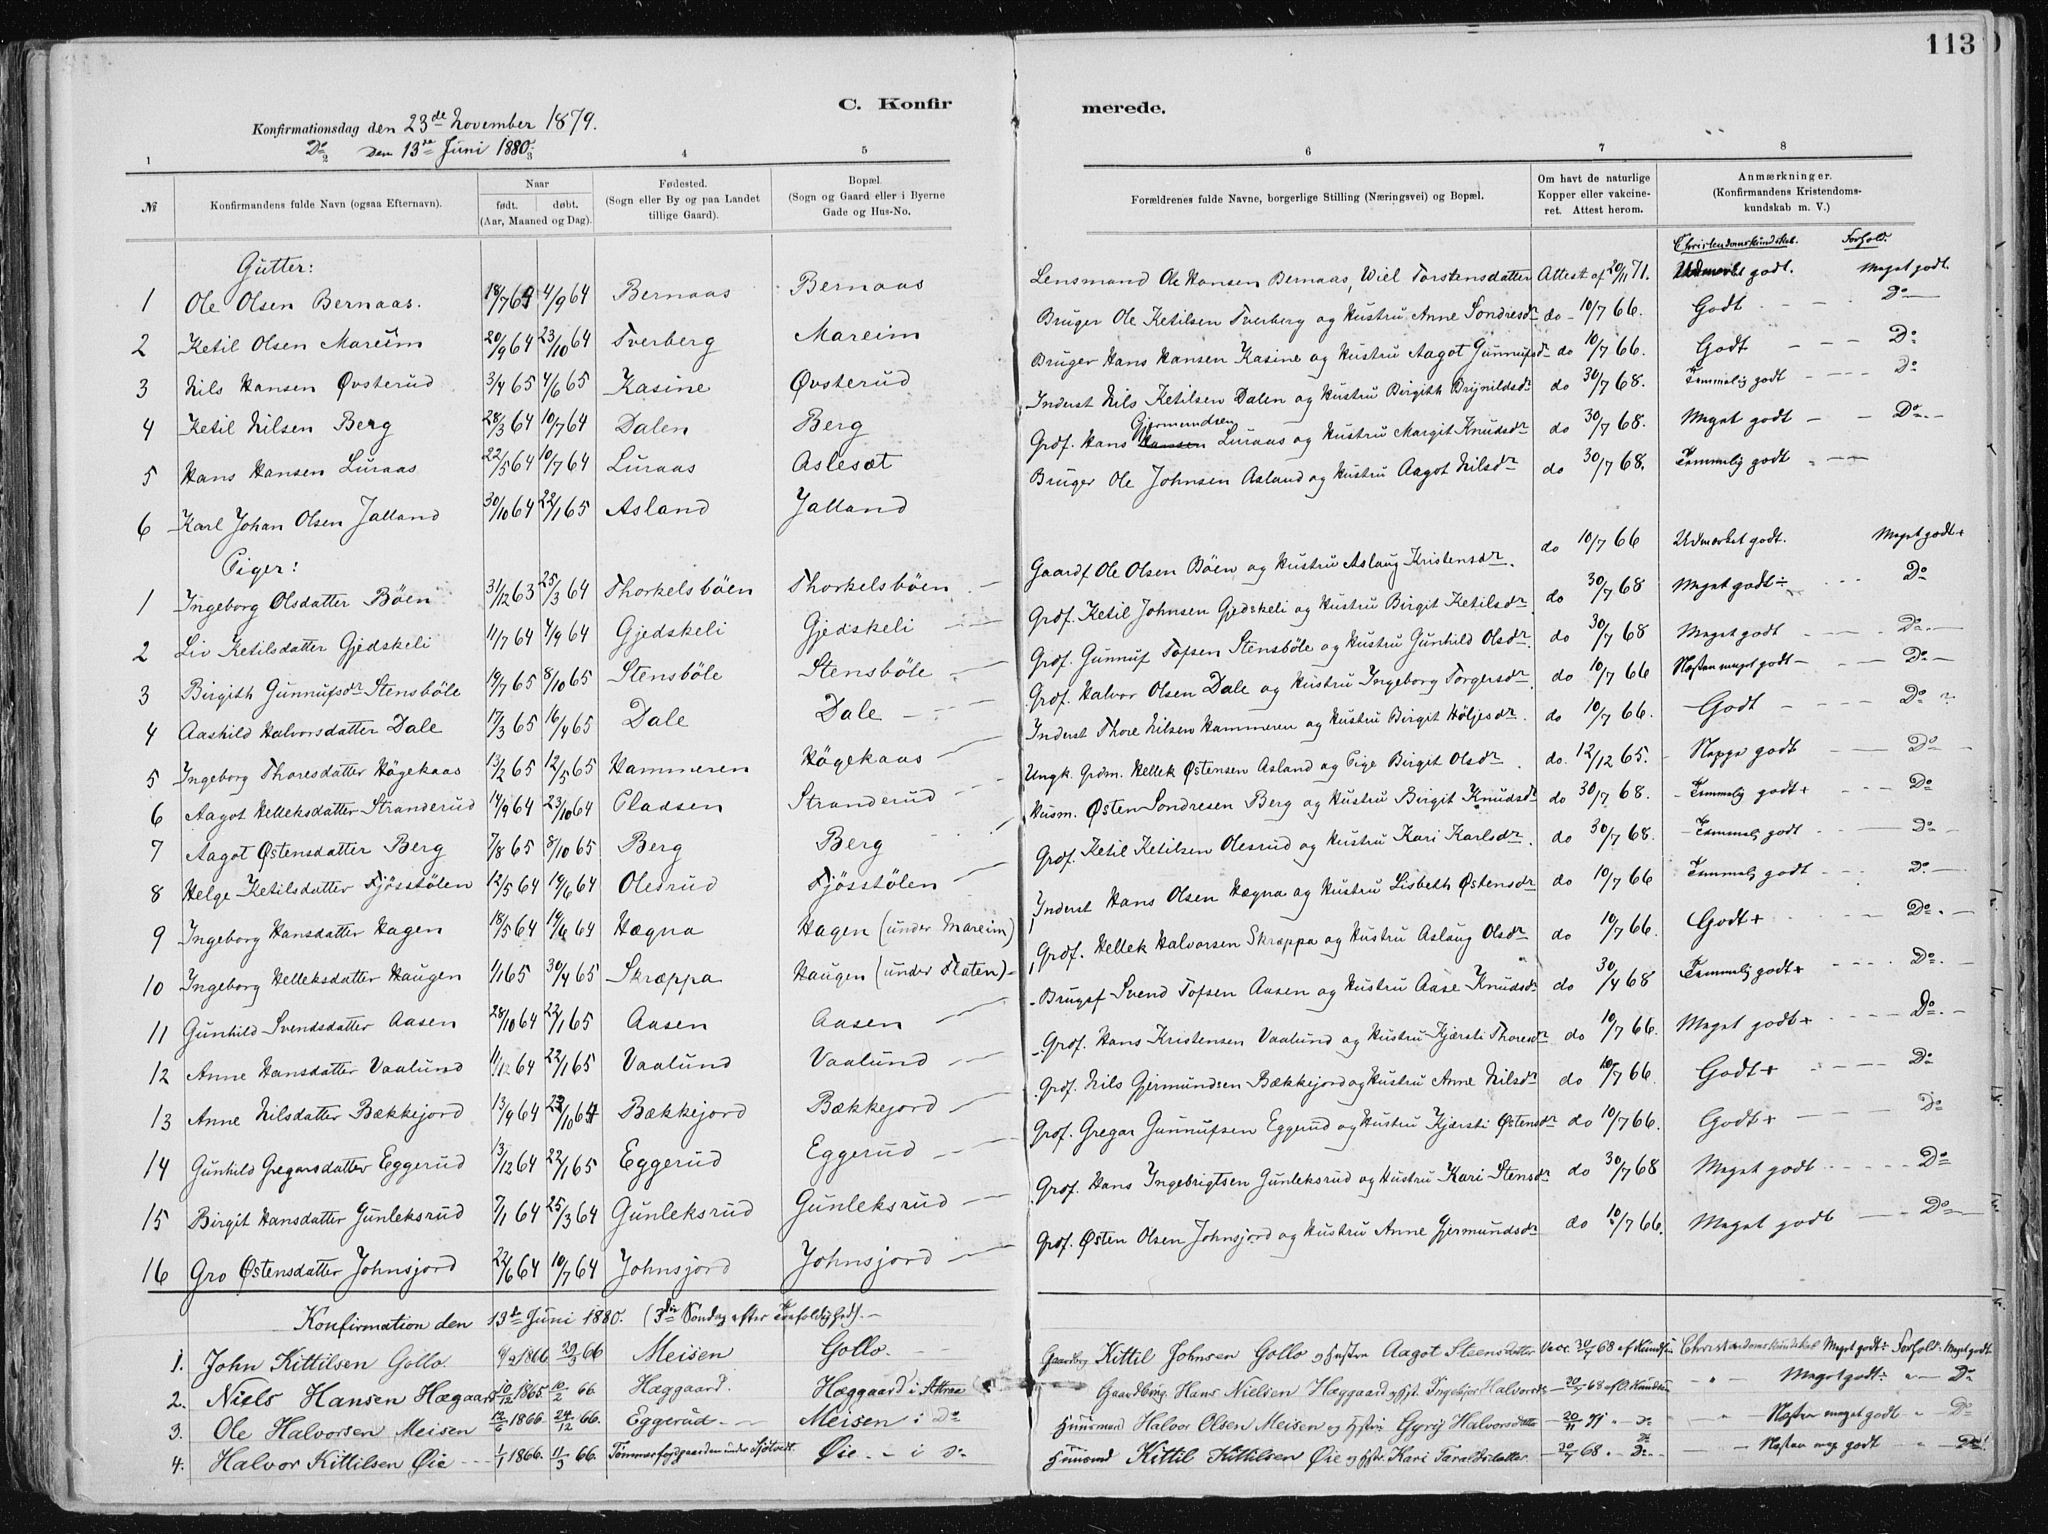 113
C. Konfir merede.
Konfirmationsdag den 23de November 1879.
Do den 13de Juni 1880
1 2 3 4 5 6 7 8
№ Konfirmandens fulde Navn (ogsaa Efternavn). Naar født. døbt. (Aar, Maaned og Dag). Fødested. (Sogn eller By og paa Landet tillige Gaard). Bopæl. (Sogn og Gaard eller i Byerne Gade og Hus-No. Forældrenes fulde Navne, borgerlige Stilling (Næringsvei) og Bopæl. Om havt de naturlige Kopper eller vakcineret. Attest herom. Anmærkninger. (Konfirmandens Kristendomskundskab m. V.)
Christendomskundskab. Forhold.
Gutter:
1 Ole Olsen Bernaas. 18/7 64 4/9 64 Bernaas Bernaas Lensmand Ole Hansen Bernaas, Wiel Torstensdatter Attest af 20/11 71. Udmerket godt. Meget godt.
2 Ketil Olsen Mareim 20/9 64 23/10 64 Tverberg Mareim Bruger Ole Ketilsen Tverberg og Hustru Anne Sondresdr do 10/7 66. Godt Do
3 Nils Hansen Øvsterud 3/4 65 4/6 65 Kasine Øvsterud Bruger Hans Hansen Kasine og Hustru Aagot Gunnufsdr do 10/7 66. Godt Do
4 Ketil Nilsen Berg 28/3 64 10/7 64 Dalen Berg Inderst Nils Ketilsen Dalen og Hustru Birgith Brijnildsdr do 30/7 68. Temmelig godt Do
5 Hans Hansen Luraas 22/5 64 10/7 64 Luraas Aslesæt Grdf. Hans Gjermundsen Luraas og Hustru Margit Knudsdr do 30/7 68. Meget godt Do
6 Karl Johan Olsen Jalland 30/10 64 22/1 65 Asland Jalland Bruger Ole Johnsen Asland og Hustru Aagot Nilsdr do 30/7 68. Temmelig godt
Piger:
1 Ingeborg Olsdatter Böen 31/12 63 25/3 64 Thorkelsböen Thorkelsböen Gaardf Ole Olsen Böen og Hustru Aslaug Kristensdr. do 10/7 66 Udmerket godt. Meget godt+
2 Liv Ketilsdatter Gjedskeli 11/7 64 4/9 64 Gjedskeli Gjedskeli Grdf. Ketil Johnsen Gjedskeli og Hustru Birgit Ketilsdr do 30/7 68 Meget godt÷ Do
3 Birgith Gunnufsdr Stensböle 19/7 65 8/10 65 Stensböle Stensböle Grdf. Gunnuf Tofsen Stensböle og Hustru Gunhild Olsdr do 30/7 68 Meget godt Do
4 Aashild Halvorsdatter Dale 17/3 65 16/4 65 Dale Dale Grdf. Halvor Olsen Dale og Hustru Ingeborg Torgersdr do 10/7 66 Næsten meget godt Do
5 Ingeborg Thoresdatter Högekaas 13/2 65 12/5 65 Hammeren Högekaas Inderst Thore Nilsen Hammeren og Hustru Birgit Höljesdr. do 10/7 66. Godt Do
6 Aagot Helleksdatter Stranderud 14/9 64 23/10 64 Pladsen Stranderud Ungk. Grdm. Hellek Østensen Asland og Pige Birgit Olsdr do. 12/12 65. Noppe godt Do
7 Aagot Østensdatter Berg 7/8 65 8/10 65 Berg Berg Husm. Østen Sondresen Berg og Hustru Birgit Knudsdr do 30/7 68. Temmelig godt+ Do
8 Helge Ketilsdatter Fjösstölen 12/5 64 19/6 64 Olesrud Fjösstölen Grdf. Ketil Ketilsen Olesrud og Hustru Kari Karlsdr. do 30/7 68. Temmelig godt Do
9 Ingeborg Hansdatter Hagen 18/5 64 19/6 64 Hægna Hagen (under Mareim) Inderst Hans Olsen Hægna og Hustru Lisbeth Østensdr do 10/7 66 Temmelig godt Do
10 Ingeborg Helleksdatter Haugen 1/1 65 30/4 65 Skræppa Haugen (under Flaten) Grdf. Hellek Halvorsen Skræppa og Hustru Aslaug Olsdr do 10/7 66. Godt+ Do
11 Gunhild Svendsdatter Aasen 28/10 64 22/1 65 Aasen Aasen Brugsf Svend Tofsen Aasen og Hustru Aase Knudsdr do 30/4 68 Temmelig godt+ Do
12 Anne Hansdatter Vaalund 11/12 64 22/1 65 Vaalund Vaalund Grdf. Hans Kristensen Vaalund og Hustru Kjærsti Thoresdr do 10/7 66. Meget godt+ Do
13 Anne Nilsdatter Bækkejord 13/9 64 23/10 64 Bækkejord Bækkejord Grdf. Nils Gjermundsen Bækkejord og Hustru Anne Nilsdr do 10/7 66. Godt+ Do
14 Gunhild Gregarsdatter Eggerud 13/12 64 22/1 65 Eggerud Eggerud Grdf. Gregar Gunnufsen Eggerud og Hustru Kjærsti Østensdr do 10/7 66. Godt+ Do
15 Birgit Hansdatter Gunleksrud 7/1 64 25/3 64 Gunleksrud Gunleksrud Grdf. Hans Ingebrigtsen Gunleksrud og Hustru Kari Stensdr do 30/7 68 Meget godt Do
16 Gro Østensdatter Johnsjord 22/6 64 10/7 64 Johnsjord Johnsjord Grdf. Østen Olsen Johnsjord og Hustru Anne Gjermundsdr do 10/7 66. Meget godt Do
Konfirmation den 13de Juni 1880. (3die Söndag efter Trefoldighed).
1. John Kittilsen Gollo 9/2 1866 29/3 66 Meisen Gollo Gaardbrg Kittil Johnsen Gollo og Hustru Aagot Steensdatter Vacc. 30/7 68 af Kundsen Christendomskundskab Meget godt Forhold Meget godt
2. Niels Hansen Hægaard 10/12 1865 10/2 66. Hæggaard. Hæggaard i Attraa Gaardbrg. Hans Nielsen Hæggaard og Hst. Ingebjor Halvorsdr 30/7 68 Meget godt Do
3. Ole Halvorsen Meisen 12/6 1866. 24/12 66. Eggerud Meisen i Do Huusmand Halvor Olsen Meisen og Hstru Gyrij Halvorsdatter 20/11 71 Do Næsten meget godt Do
4. Halvor Kittilsen Øie 1/1 1866. 11/3 66. Tömmerfossgaarden under Sjötvedt Øie i Do Huusmd Kittil Kittilsen Øie og Hstr. Kari Taraldsdatter 30/7 68 Do Næsten meg godt Do